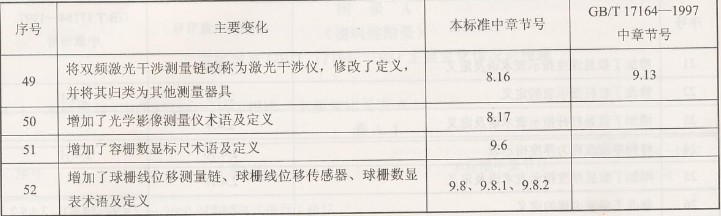 序号 主要变化 本标准中章节号 GB/T 17164—1997
中章节号
49 将双频激光干涉测量链改称为激光干涉仪，修改了定义，
并将其归类为其他测量器具 8.16 9.13
50 增加了光学影像测量仪术语及定义 8.17
51 增加了容栅数显标尺术语及定义 9.6
52 增加了球栅线位移测量链、球栅线位移传感器、球栅数显
表术语及定义 9.8、9.8.1、9.8.2